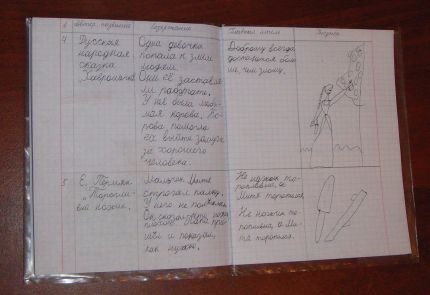 Автор, название Содержание Главная мысль Рисунок
4 Русская
народная
сказка
Хаврошечка
Одна девочка
попала к злым
людям.
Они её заставля
ли работать.
У неё была люби
мая корова. Ко
рова помогла
ей выйти замуж
за хорошего
человека.
Доброму всегда
достаётся боль
ше, чем злому.
5 Е. Пермяк
"Торопли
вый ножик"
Мальчик Митя
строгал палку.
У него не получилось
Он сказал
и показал,
как нужно.
Не ножик то
ропливый, а
Митя торопился
Не ножик то
ропливый, а Ми
тя торопился.